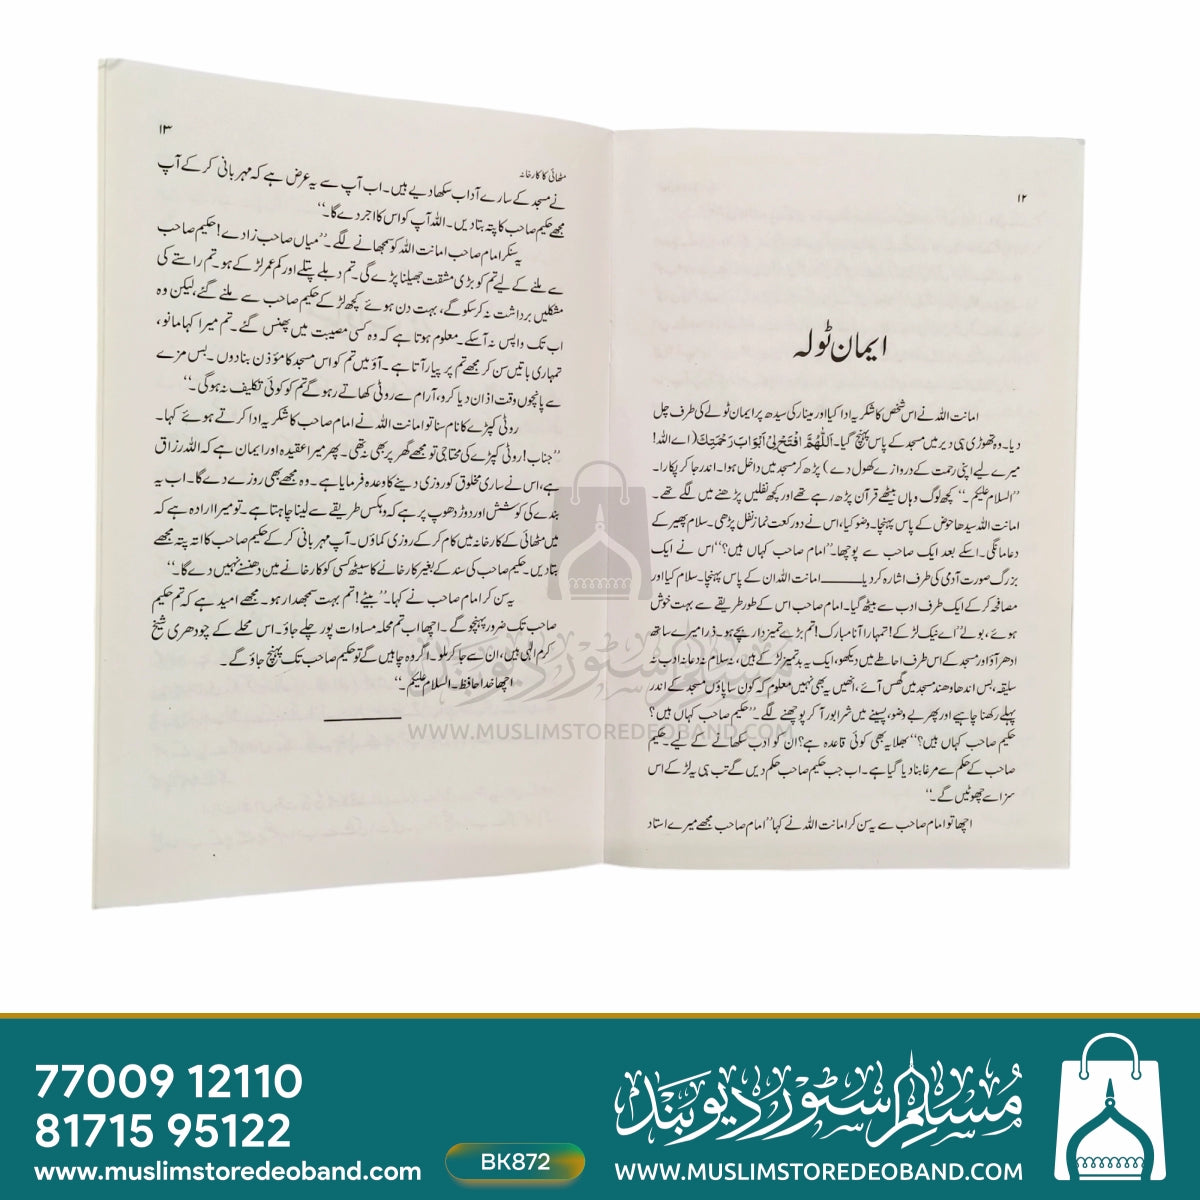 ۱۲
ایمان ٹولہ
امانت اللہ نے اس شخص کا شکریہ ادا کیا اور مینار کی سیدھ پر ایمان ٹولے کی طرف چل
دیا۔ وہ تھوڑی ہی دیر میں مسجد کے پاس پہنچ گیا۔ اَللّٰهُمَّ افْتَحْ لِیْ اَبْوَابَ رَحْمَتِكَ (اے اللہ!
میرے لیے اپنی رحمت کے دروازے کھول دے) پڑھ کر مسجد میں داخل ہوا۔ اندر جا کر پکارا۔
”السلام علیکم۔“ کچھ لوگ وہاں بیٹھے قرآن پڑھ رہے تھے اور کچھ نفلیں پڑھنے میں لگے تھے۔
امانت اللہ سیدھا حوض کے پاس پہنچا۔ وضو کیا، اس نے دو رکعت نماز نفل پڑھی۔ سلام پھیر کے
دعا مانگی۔ اسکے بعد ایک صاحب سے پوچھا۔ ”امام صاحب کہاں ہیں؟“ اس نے ایک
بزرگ صورت آدمی کی طرف اشارہ کر دیا ــــــــ امانت اللہ ان کے پاس پہنچا۔ سلام کیا اور
مصافحہ کر کے ایک طرف ادب سے بیٹھ گیا۔ امام صاحب اس کے طور طریقے سے بہت خوش
ہوئے، بولے ”اے نیک لڑکے! تمہارا آنا مبارک! تم بڑے تمیز دار بچے ہو۔ ذرا میرے ساتھ
ادھر آؤ اور مسجد کے اس طرف احاطے میں دیکھو، ایک یہ بد تمیز لڑکے ہیں، نہ سلام نہ دعا نہ ادب نہ
سلیقہ، بس اندھا دھند مسجد میں گھس آئے، انھیں یہ بھی نہیں معلوم کہ کون سا پاؤں مسجد کے اندر
پہلے رکھنا چاہیے اور پھر بے وضو، پسینے میں شرابور آ کر پوچھنے لگے۔ ”حکیم صاحب کہاں ہیں؟
حکیم صاحب کہاں ہیں؟“ بھلا یہ بھی کوئی قاعدہ ہے؟ ان کو ادب سکھانے کے لیے۔ حکیم
صاحب کے حکم سے مرغا بنا دیا گیا ہے۔ اب جب حکیم صاحب حکم دیں گے تب ہی یہ لڑکے اس
سزا سے چھوٹیں گے۔“
اچھا تو امام صاحب سے یہ سن کر امانت اللہ نے کہا ”امام صاحب مجھے میرے استاد
۱۳
مٹھائی کا کارخانہ
نے مسجد کے سارے آداب سکھا دیے ہیں۔ اب آپ سے یہ عرض ہے کہ مہربانی کر کے آپ
مجھے حکیم صاحب کا پتہ بتا دیں۔ اللہ آپ کو اس کا اجر دے گا۔“
یہ سنکر امام صاحب امانت اللہ کو سمجھانے لگے۔ ”میاں صاحب زادے! حکیم صاحب
سے ملنے کے لیے تم کو بڑی مشقت جھیلنا پڑے گی۔ تم دبلے پتلے اور کم عمر لڑکے ہو۔ تم راستے کی
مشکلیں برداشت نہ کر سکو گے، بہت دن ہوئے کچھ لڑکے حکیم صاحب سے ملنے گئے، لیکن وہ
اب تک واپس نہ آ سکے۔ معلوم ہوتا ہے کہ وہ کسی مصیبت میں پھنس گئے۔ تم میرا کہا مانو،
تمہاری باتیں سن کر مجھے تم پر پیار آتا ہے۔ آؤ میں تم کو اس مسجد کا مؤذن بنا دوں۔ بس مزے
سے پانچوں وقت اذان دیا کرو، آرام سے روٹی کھاتے رہو گے تم کو کوئی تکلیف نہ ہوگی۔“
روٹی کپڑے کا نام سنا تو امانت اللہ نے امام صاحب کا شکریہ ادا کرتے ہوئے کہا۔
”جناب! روٹی کپڑے کی محتاجی تو مجھے گھر پر بھی نہ تھی۔ پھر میرا عقیدہ اور ایمان ہے کہ اللہ رزاق
ہے، اس نے ساری مخلوق کو روزی دینے کا وعدہ فرمایا ہے۔ وہ مجھے بھی روزے دے گا۔ اب یہ
بندے کی کوشش اور دوڑ دھوپ پر ہے کہ وہ کس طریقے سے لینا چاہتا ہے۔ تو میرا ارادہ ہے کہ
میں مٹھائی کے کارخانہ میں کام کر کے روزی کماؤں۔ آپ مہربانی کر کے حکیم صاحب کا اتہ پتہ مجھے
بتا دیں۔ حکیم صاحب کی سند کے بغیر کارخانے کا سیٹھ کسی کو کارخانے میں دھنسنے نہیں دے گا۔“
یہ سن کر امام صاحب نے کہا۔ ”بیٹے! تم بہت سمجھدار ہو۔ مجھے امید ہے کہ تم حکیم
صاحب تک ضرور پہنچو گے۔ اچھا اب تم محلہ مساوات پور چلے جاؤ۔ اس محلے کے چودھری شیخ
کرم الٰہی ہیں، ان سے جا کر ملو۔ اگر وہ چاہیں گے تو حکیم صاحب تک پہنچ جاؤ گے۔
اچھا خدا حافظ۔ السلام علیکم۔“
مسلم سٹور دیوبند
WWW.MUSLIMSTOREDEOBAND.COM
77009 12110
81715 95122
www.muslimstoredeoband.com
BK872
مسلم سٹور دیوبند
WWW.MUSLIMSTOREDEOBAND.COM